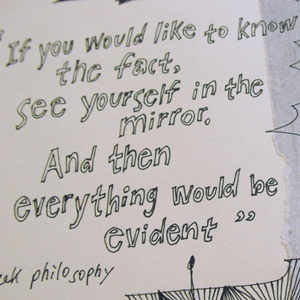 "If you would like to know
the fact,
See yourself in the
mirror.
And then
everything would be
evident"
philosophy